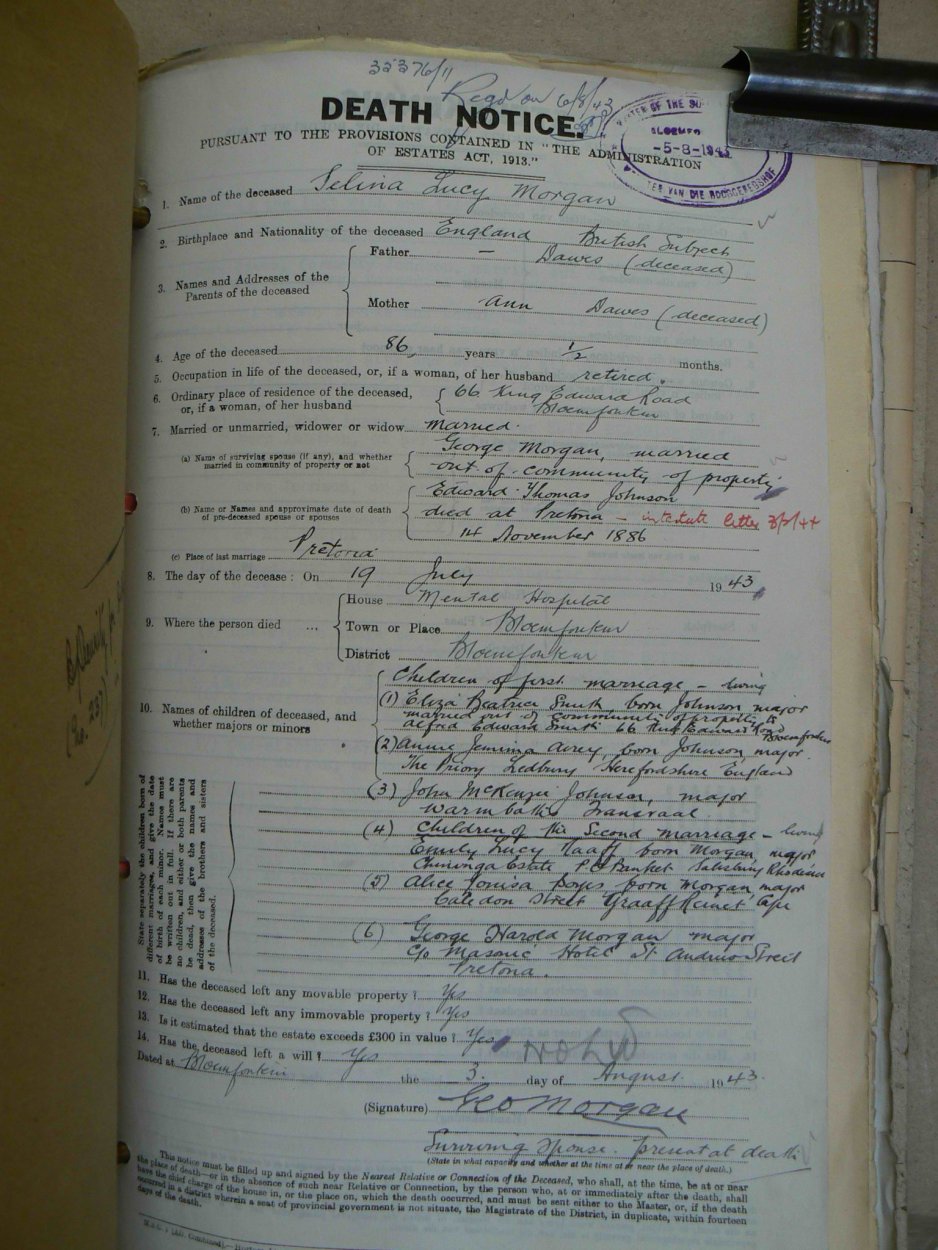 32376/11
Regd on 6/8/43
DEATH NOTICE.
PURSUANT TO THE PROVISIONS CONTAINED IN "THE ADMINISTRATION
OF ESTATES ACT, 1913."
-5-8-1943
1. Name of the deceased Selina Lucy Morgan
2. Birthplace and Nationality of the deceased England British Subject
3. Names and Addresses of the Parents of the deceased
Father — Dawes (deceased)
Mother Ann Dawes (deceased)
4. Age of the deceased 86 years ½ months.
5. Occupation in life of the deceased, or, if a woman, of her husband retired.
6. Ordinary place of residence of the deceased, or, if a woman, of her husband
66 King Edward Road
Bloemfontein
7. Married or unmarried, widower or widow married.
(a) Name of surviving spouse (if any), and whether married in community of property or not
George Morgan, married
out of community of property
(b) Name or Names and approximate date of death of pre-deceased spouse or spouses
Edward Thomas Johnson
died at Pretoria – intestate letter
14 November 1886
(c) Place of last marriage Pretoria
8. The day of the decease: On 19 July 1943
9. Where the person died ...
House Mental Hospital
Town or Place Bloemfontein
District Bloemfontein
10. Names of children of deceased, and whether majors or minors
Children of first marriage – living
(1) Eliza Beatrice Smith, born Johnson major
married out of community of property to
Alfred Edward Smith 66 King Edward Road Bloemfontein
(2) Annie Jemima Avery, born Johnson, major.
The Priory Ledbury Herefordshire England
(3) John McKenzie Johnson, major
Warmbaths Transvaal.
(4) Children of the Second marriage – living
Emily Lucy Naaff born Morgan, major
Estate P.O. Banket Salisbury Rhodesia
(5) Alice Louisa born Morgan major
Caledon Street Graaff Reinet Cape
(6) George Harold Morgan major
c/o Masonic Hotel St Andries Street
Pretoria.
State separately the children born of
different marriages, and give the date
of birth of each minor. Names must
be written out in full. If there are
no children, and either or both parents
be dead, then give the names and
addresses of the brothers and sisters
of the deceased.
11. Has the deceased left any movable property? Yes
12. Has the deceased left any immovable property? Yes
13. Is it estimated that the estate exceeds £300 in value? Yes
14. Has the deceased left a will? Yes
Noted
Dated at Bloemfontein the 3. day of August. 1943.
(Signature) Geo Morgan
Surviving Spouse. present at death
(State in what capacity and whether at the time at or near the place of death.)
This notice must be filled up and signed by the Nearest Relative or Connection of the Deceased, who shall, at the time, be at or near
the place of death—or in the absence of such near Relative or Connection, by the person who, at or immediately after the death, shall
have the chief charge of the house in, or the place on, which the death occurred, and must be sent either to the Master, or, if the death
occurred in a district wherein a seat of provincial government is not situate, the Magistrate of the District, in duplicate, within fourteen
days of the death.